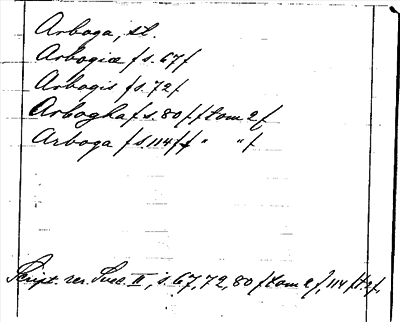 Arboga, st.
Arbogiæ f s. 67 f
Arbogis f s. 72 f
Arbogha f s. 80 f f tom 2 f
Arboga f s. 114 f f " " f
Script. rer. Suec. II, s. 67, 72, 80 f tom 2 f, 114 f t. 2 f.